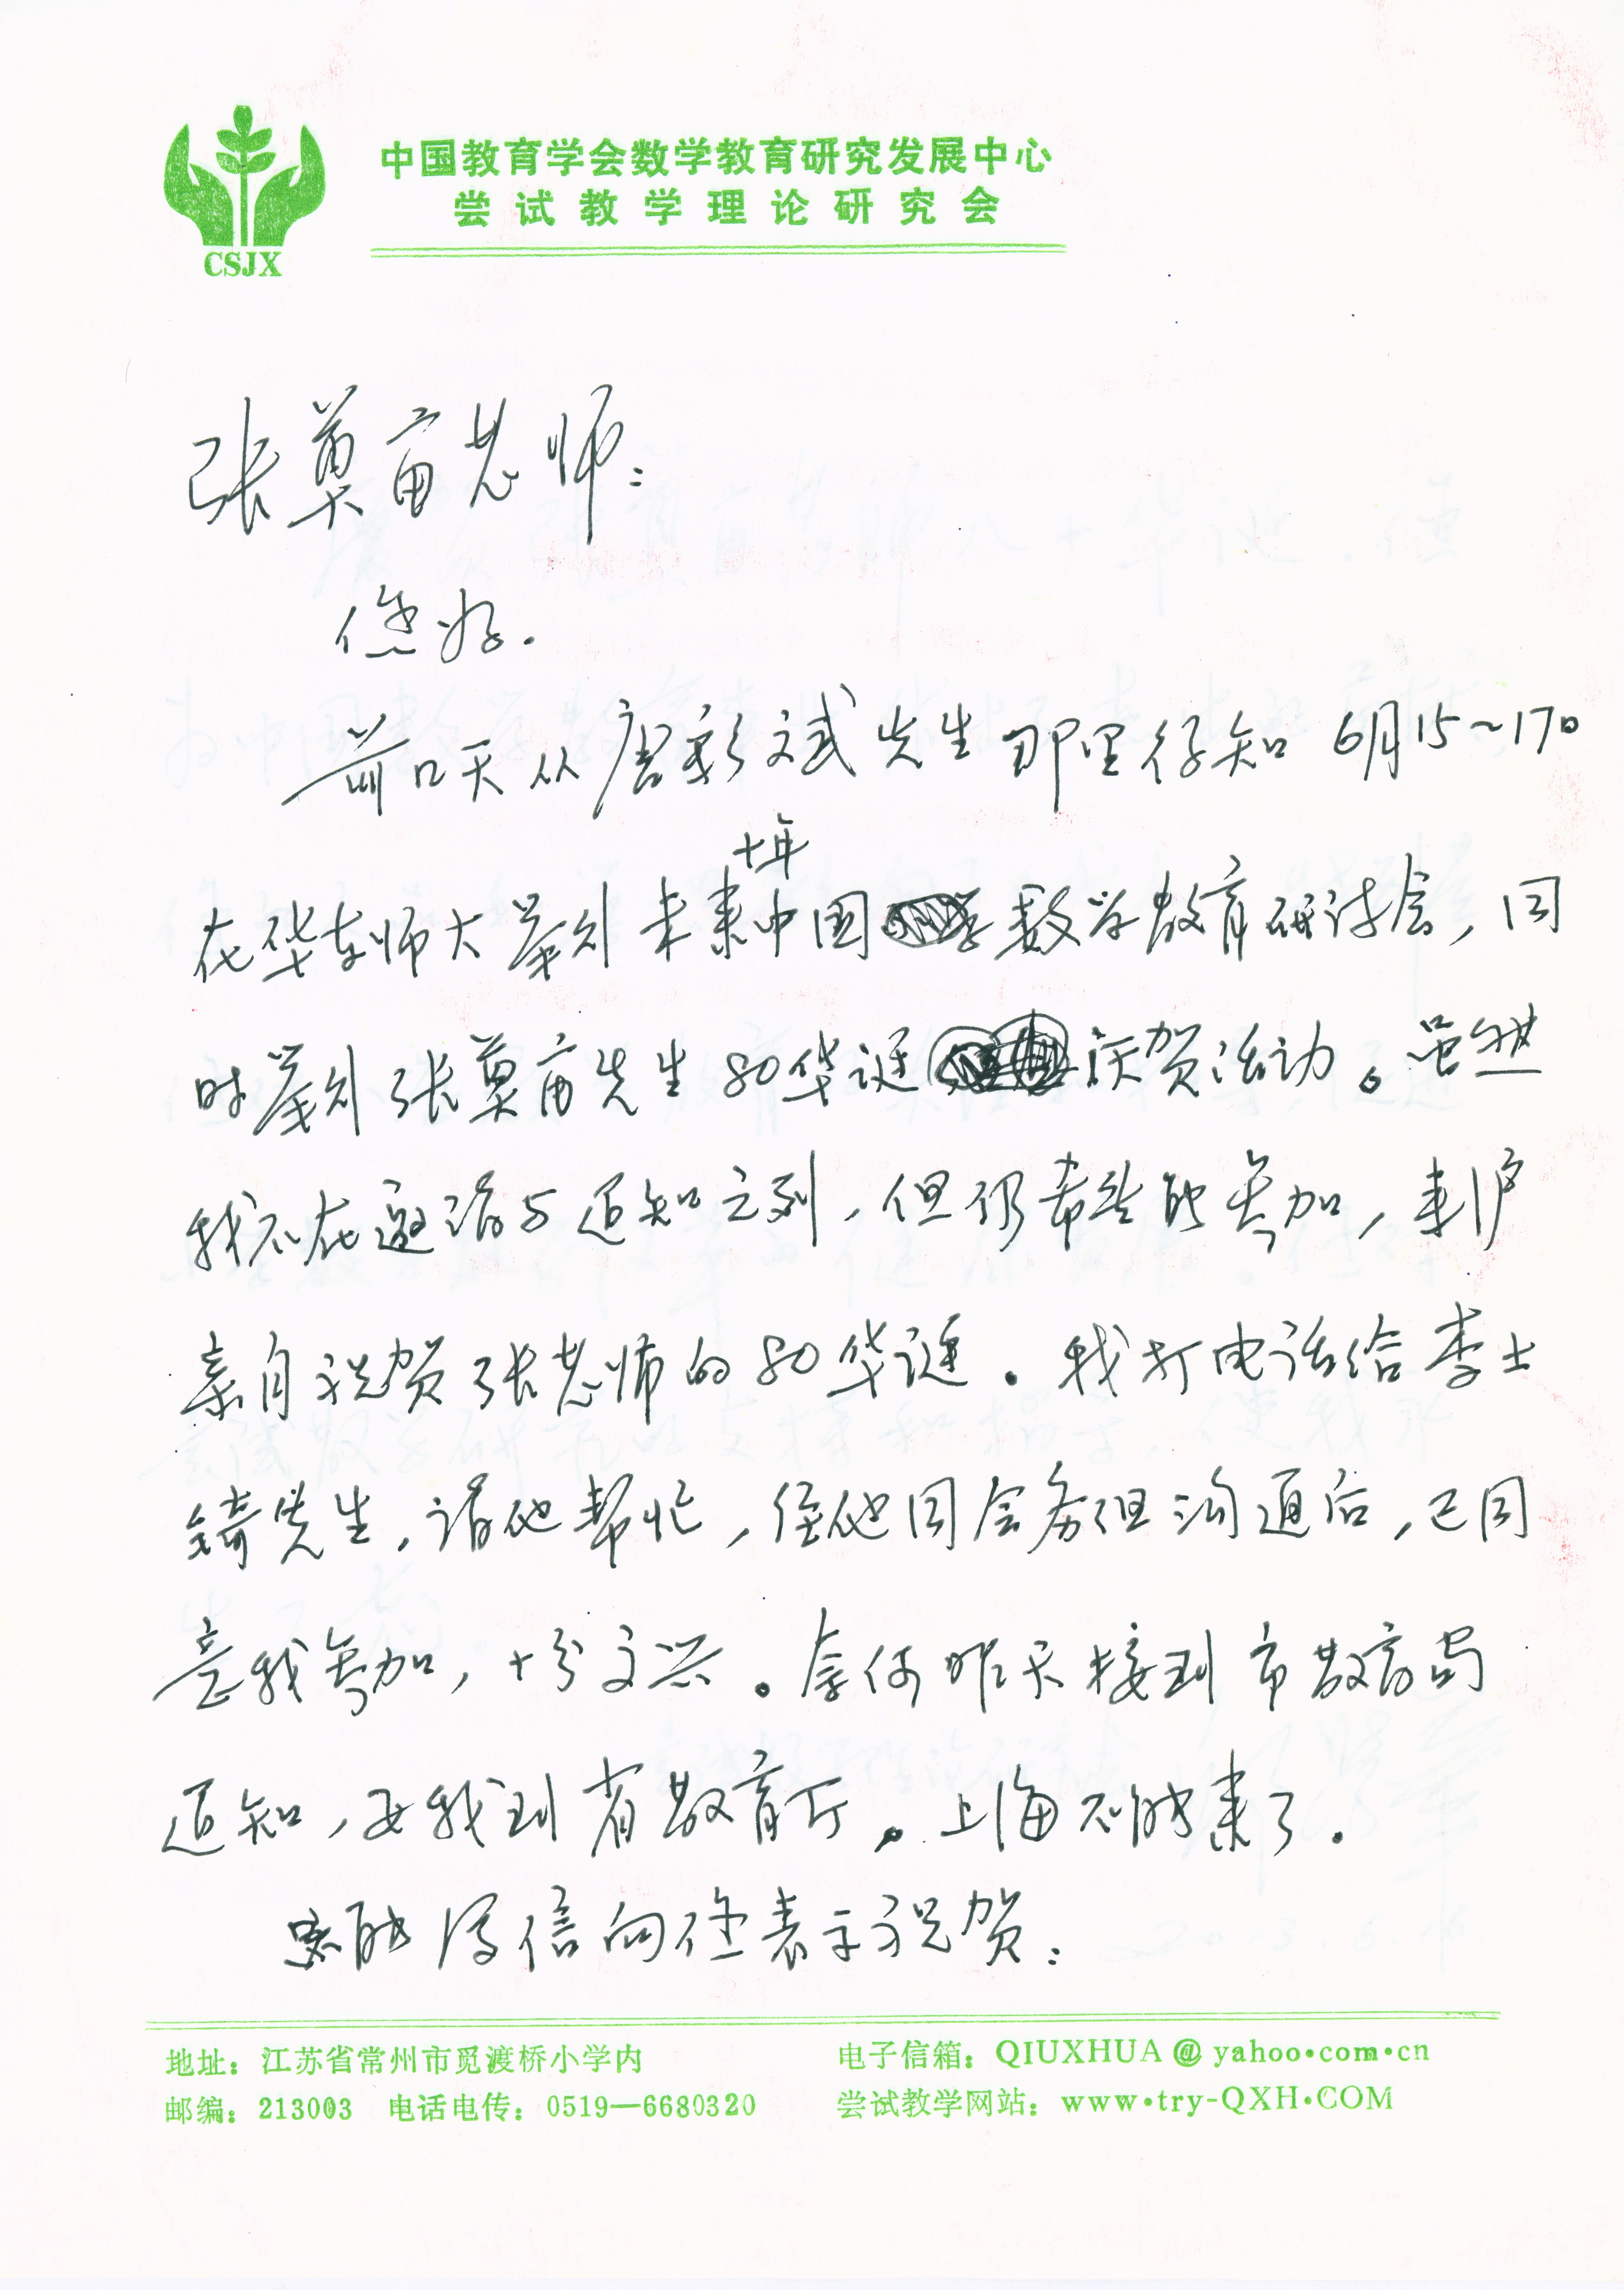 中国教育学会数学教育研究发展中心
尝试教学理论研究会
CSJX
张奠宙老师:
您好.
前几天从唐彩斌先生那里得知 6月15~17日
十年
在华东师大举行未来中国数学教育研讨会,同
时举行张奠宙先生80华诞庆贺活动。虽然
我不在邀请与通知之列,但仍希望能参加,来沪
亲自祝贺张老师的80华诞.我打电话给李士
锜先生,请他帮忙,经他同会务组沟通后,已同
意我参加,十分高兴。奈何昨天接到市教育局
通知,要我到省教育厅。上海不能来了.
只能写信向您表示祝贺:
地址:江苏省常州市觅渡桥小学内
电子信箱:QIUXHUA@yahoo•com•cn
邮编:213003 电话电传:0519—6680320
尝试教学网站:www•try-QXH•COM